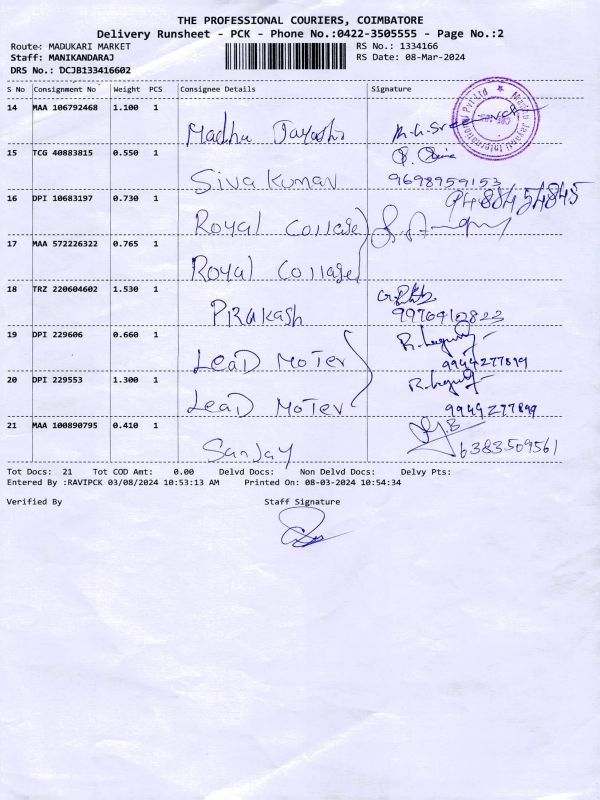 THE PROFESSIONAL COURIERS, COIMBATORE
Delivery Runsheet - PCK - Phone No.:0422-3505555 - Page No.:2
Route: MADUKARI MARKET RS No.: 1334166
Staff: MANIKANDARAJ RS Date: 08-Mar-2024
DRS No.: DCJB133416602
S No Consignment No Weight PCS Consignee Details Signature
14 MAA 106792468 1.100 1
Madhu
15 TCG 40883815 0.550 1
Siva Kumar 9698959153
16 DPI 10683197 0.730 1 9488454845
Royal Collage
17 MAA 572226322 0.765 1
Royal Collage
18 TRZ 220604602 1.530 1
PRAKASH 9976910823
19 DPI 229606 0.660 1
LEAD MOTER 9944277899
20 DPI 229553 1.300 1
LEAD MOTER 9944277899
21 MAA 100890795 0.410 1
Sanjay 6383509561
Tot Docs: 21 Tot COD Amt: 0.00 Delvd Docs: Non Delvd Docs: Delvy Pts:
Entered By :RAVIPCK 03/08/2024 10:53:13 AM Printed On: 08-03-2024 10:54:34
Verified By Staff Signature